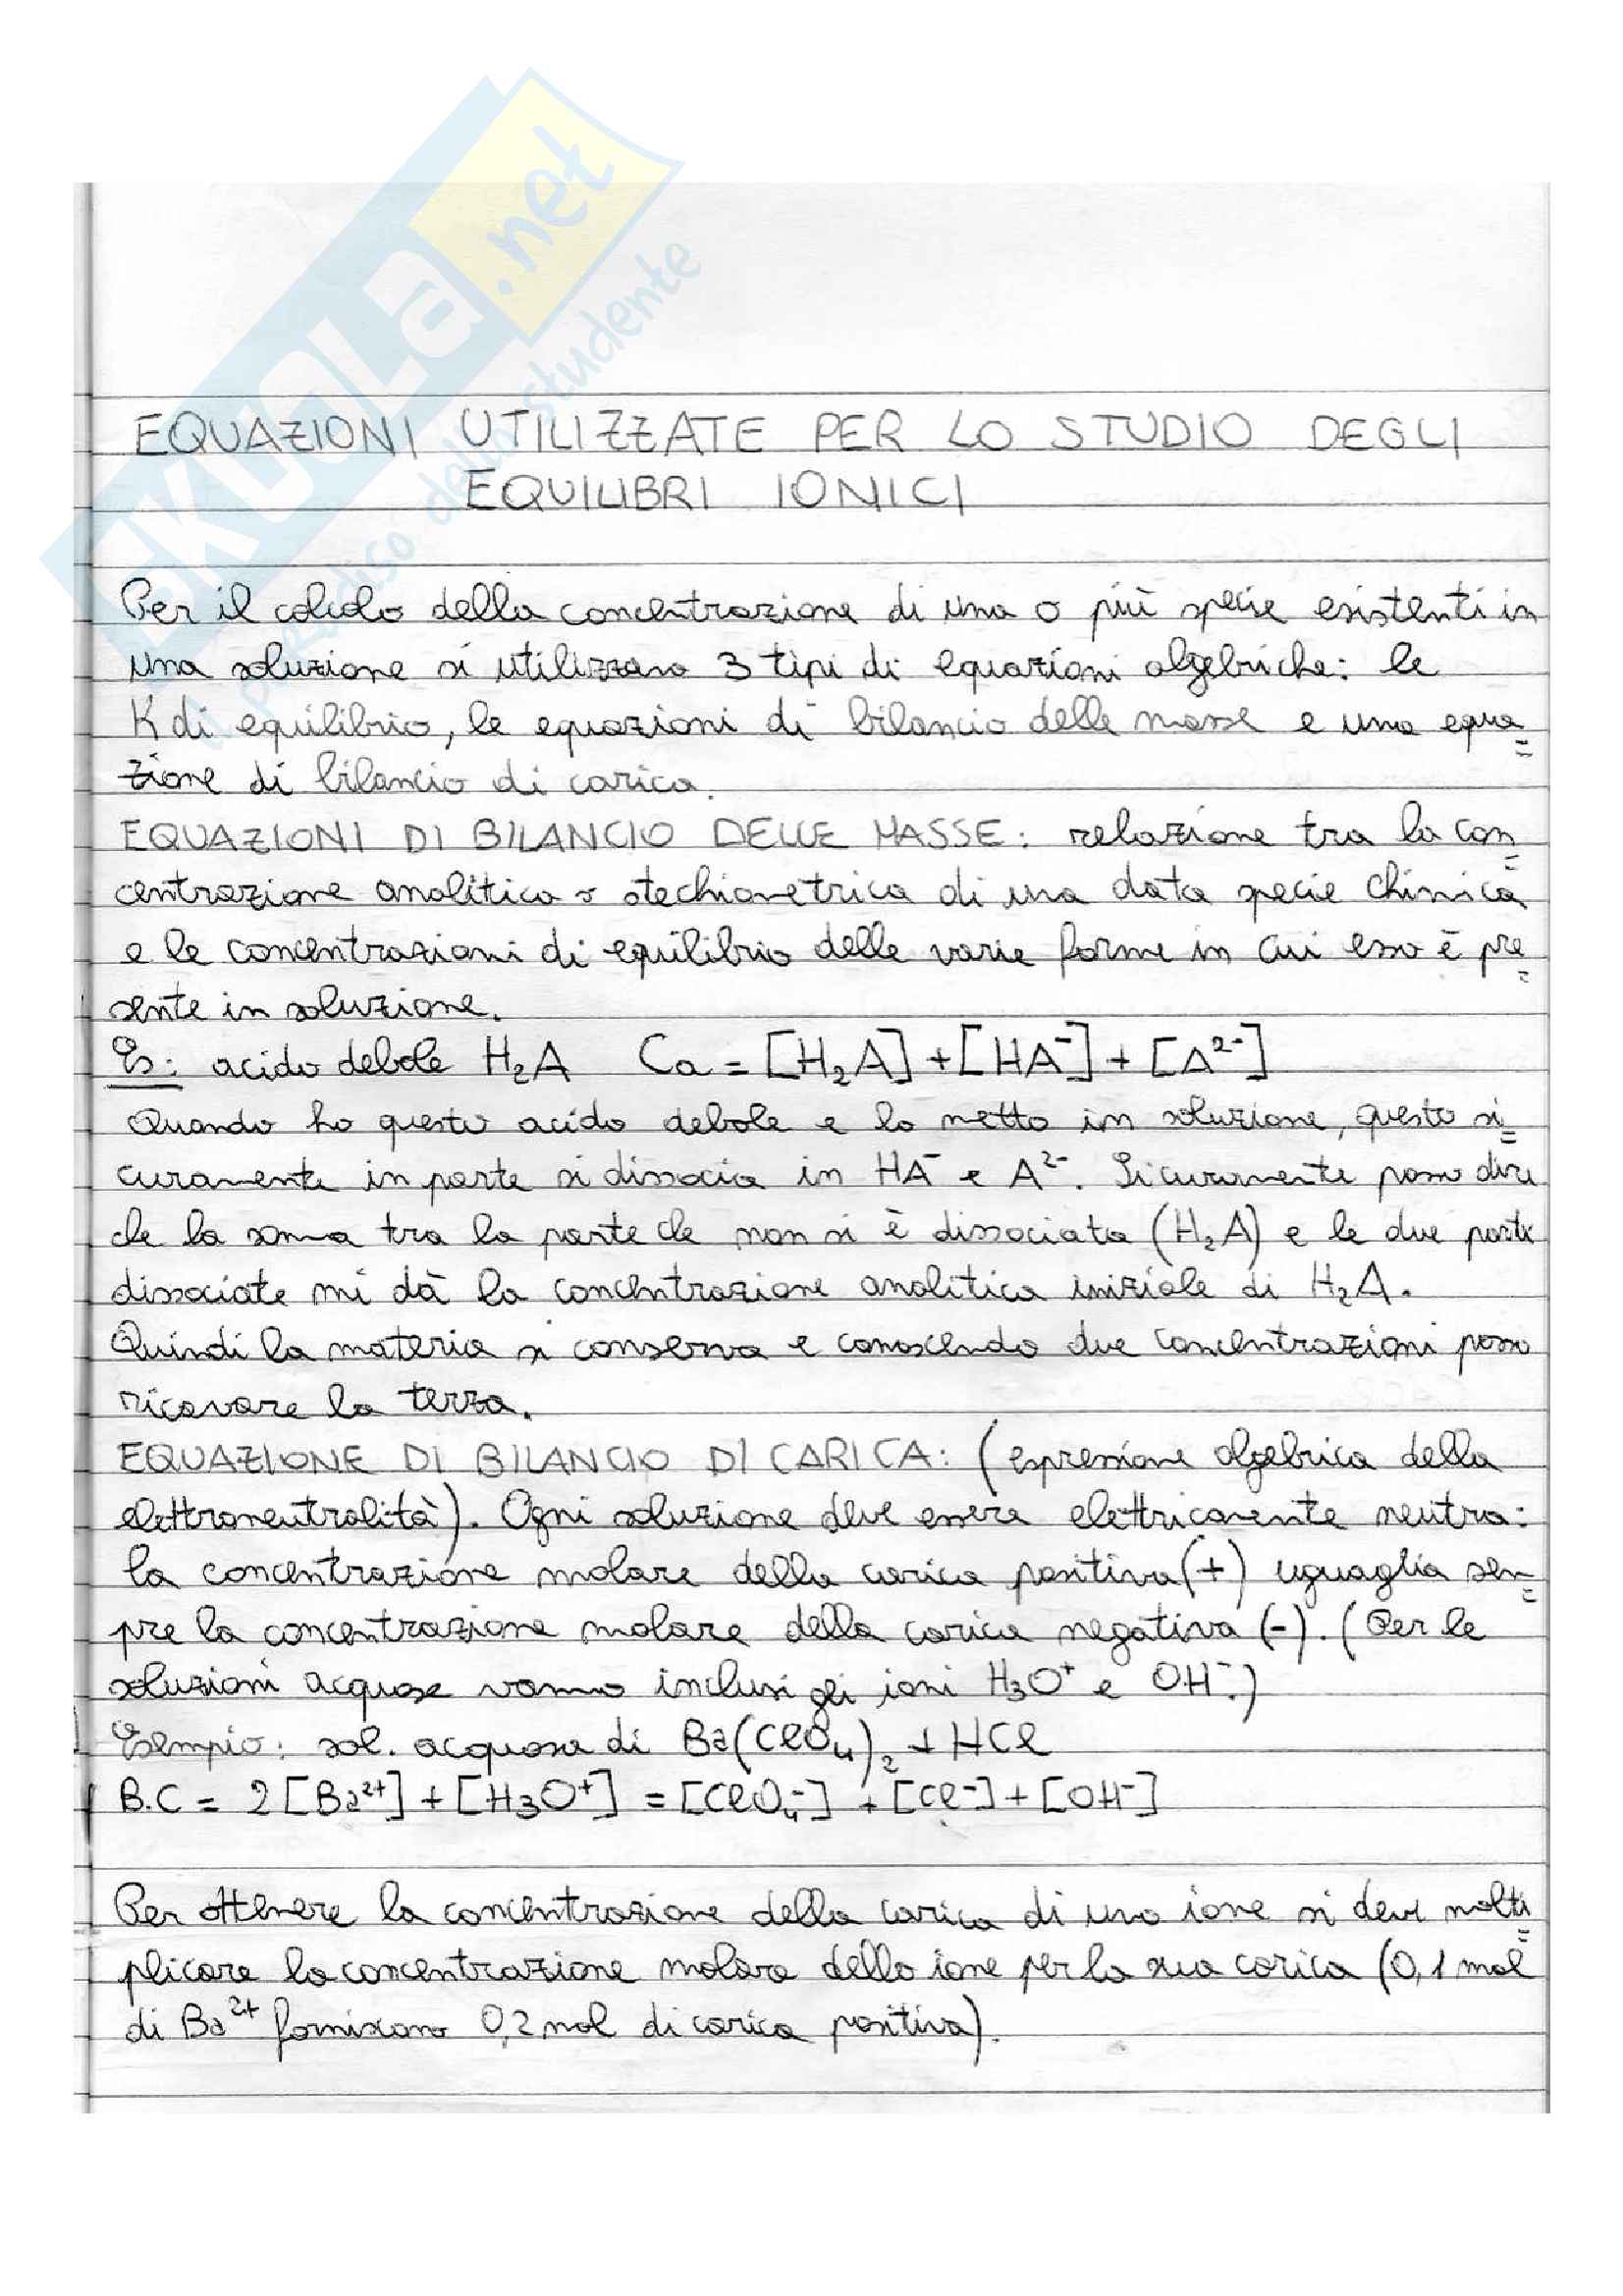 SKUOLA.net
il paradiso dello studente
EQUAZIONI UTILIZZATE PER LO STUDIO DEGLI
EQUILIBRI IONICI
Per il calcolo della concentrazione di una o più specie esistenti in
una soluzione si utilizzano 3 tipi di equazioni algebriche: le
K di equilibrio, le equazioni di bilancio delle masse e una equa=
zione di bilancio di carica.
EQUAZIONI DI BILANCIO DELLE MASSE: relazione tra la con=
centrazione analitica o stechiometrica di una data specie chimica
e le concentrazioni di equilibrio delle varie forme in cui essa è pre=
sente in soluzione.
Es: acido debole H₂A Ca = [H₂A] + [HA⁻] + [A²⁻]
Quando ho questo acido debole e lo metto in soluzione, questo si=
curamente in parte si dissocia in HA⁻ e A²⁻. Sicuramente posso dire
che la somma tra la parte che non si è dissociata (H₂A) e le due parti
dissociate mi dà la concentrazione analitica iniziale di H₂A.
Quindi la materia si conserva e conoscendo due concentrazioni posso
ricavare la terza.
EQUAZIONE DI BILANCIO DI CARICA: (espressione algebrica della
elettroneutralità). Ogni soluzione deve essere elettricamente neutra:
la concentrazione molare della carica positiva (+) uguaglia sem=
pre la concentrazione molare della carica negativa (-). (Per le
soluzioni acquose vanno inclusi gli ioni H₃O⁺ e OH⁻.)
Esempio: sol. acquosa di Ba(ClO₄)₂ + HCl
B.C = 2 [Ba²⁺] + [H₃O⁺] = [ClO₄⁻] + [Cl⁻] + [OH⁻]
Per ottenere la concentrazione della carica di uno ione si deve molti=
plicare la concentrazione molare dello ione per la sua carica (0,1 mol
di Ba²⁺ forniscono 0,2 mol di carica positiva).